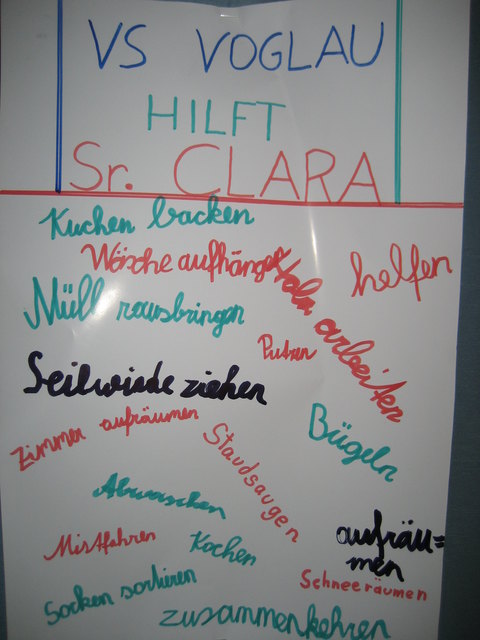 VS VOGLAU
HILFT
Sr. CLARA
Kuchen backen
Wäsche aufhängen
helfen
Holz arbeiten
Müll rausbringen
Putzen
Seilwinde ziehen
Zimmer aufräumen
Bügeln
Staudsaugen
Abwaschen
aufräu=
men
Mistfahren
Kochen
Schneeräumen
Socken sortieren
zusammenkehren